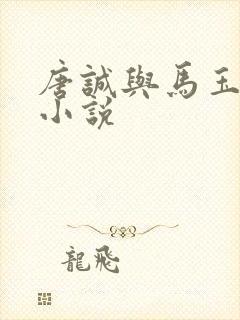 唐誠與馬玉
小說
龍飛